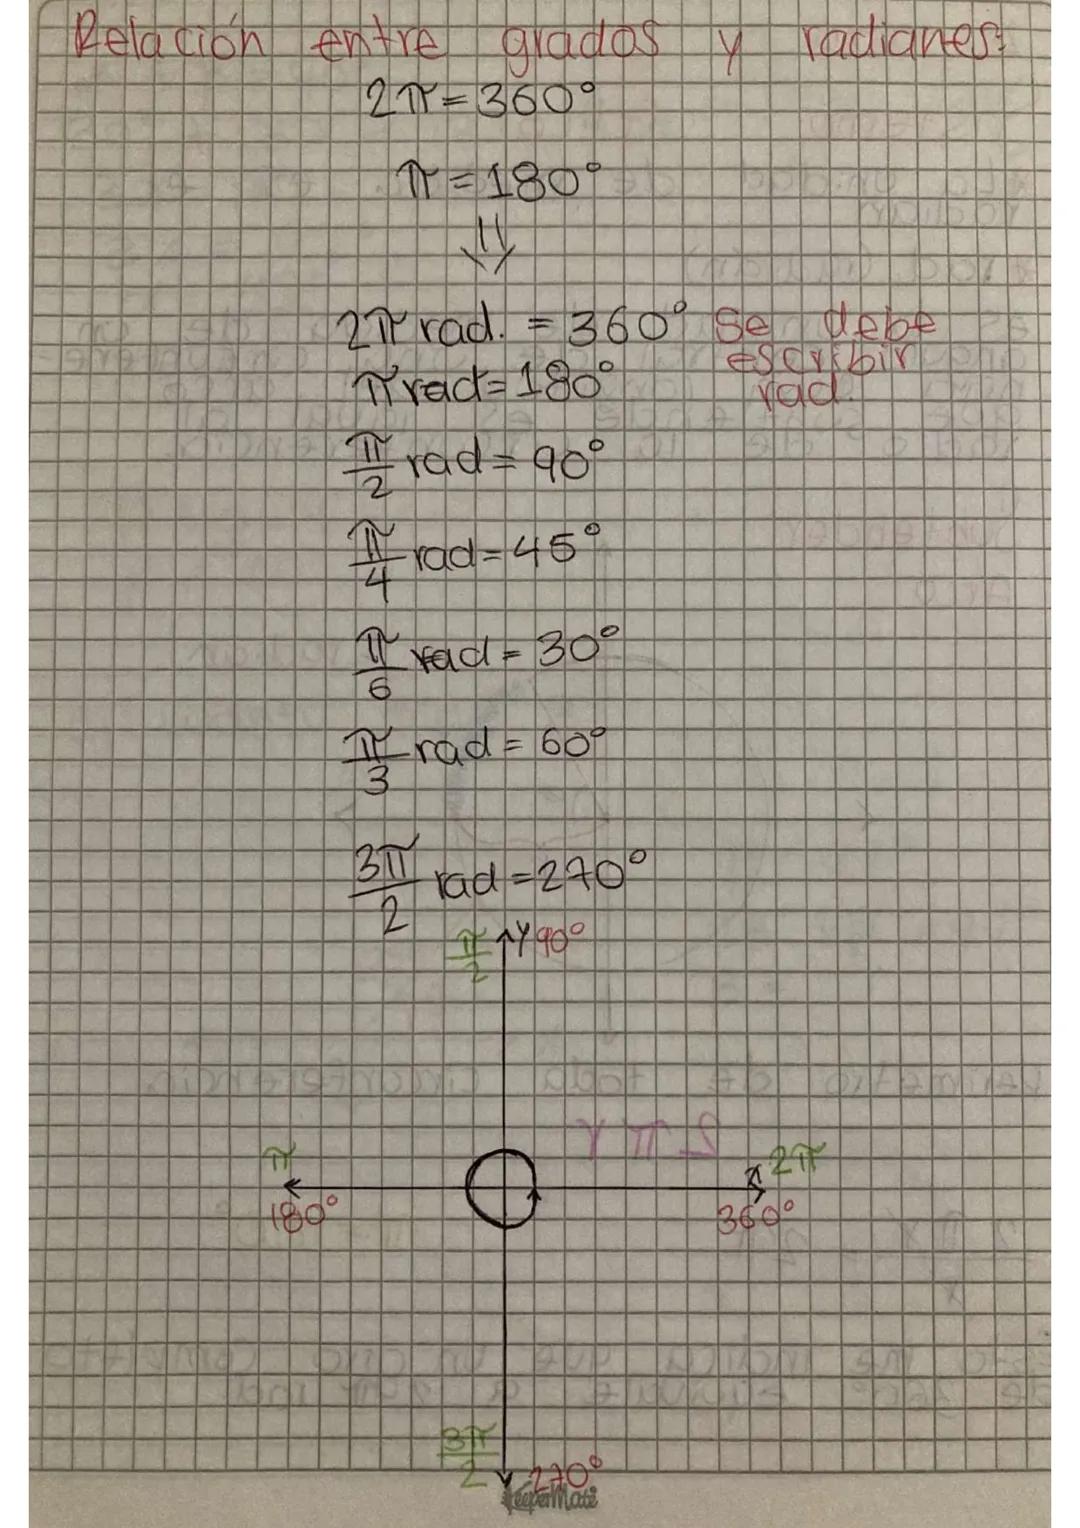 Relación entre grados y radianes:
2π=360°
π=180°
⇓
2π rad. = 360° Se debe
escribir
π rad=180° rad.
π/2 rad= 90°
π/4 rad=45°
π/6 rad= 30°
π/3 rad= 60°
3π/2 rad=270°
π/2 y 90°
π 2π
180° 360°
3π/2 270°
KeeperMate